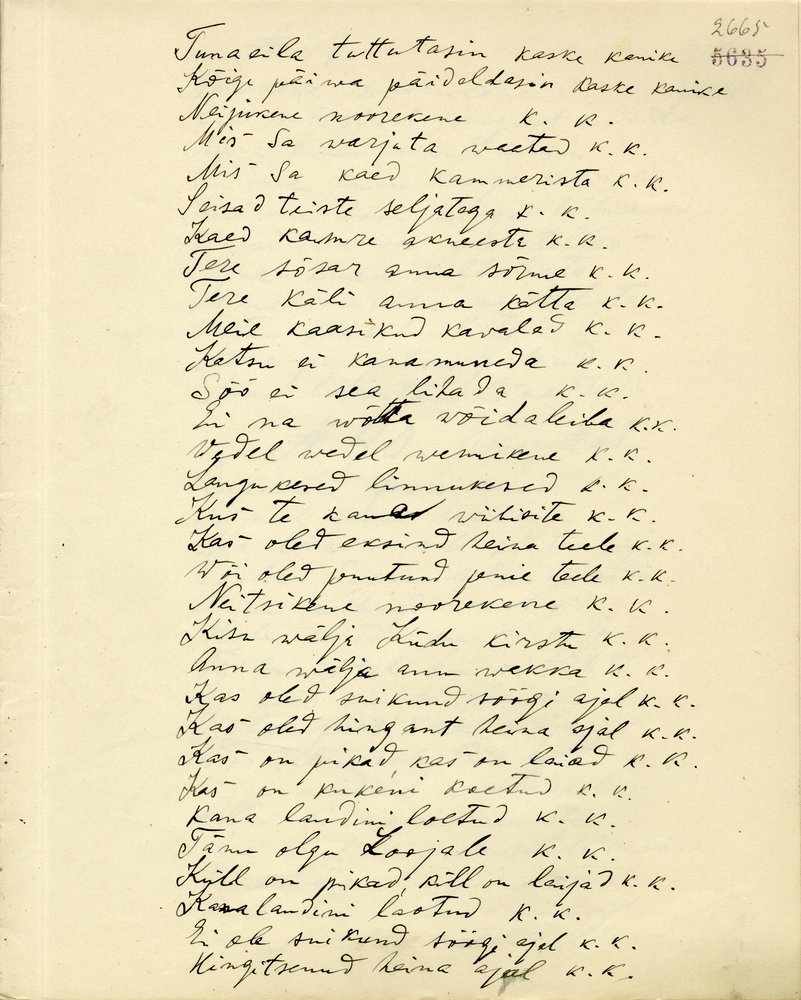 2665
5635
Tunaeila tuttutasin kaske kanike
Kõige päiwa päideldasin kaske kanike
Neijukene noorekene k. k.
Mis Sa warjuta waatad k. k.
Mis Sa kaed kammerista k. k.
Seisad teiste seljataga k. k.
Kaed kamre akneesta k. k.
Tere sõsar anna sõrme k. k.
Tere käli anna kätta k. k.
Meil kaasikud kavalad k. k.
Katsu ei kanamuneda k. k.
Söö ei sea lihada k. k.
Ei na wõtta wõidaleiba k.k.
Vedel wedel wennikene k. k.
Langukesed linnukesed k. k.
Kus te kauas wiibisite k. k.
Kas oled eksind heina teele k. k.
Wõi oled puutund penie teele k. k.
Neitsikene noorekene k. k.
Kisu wälja Kiidu kirstu k. k.
Anna wälja annu wakka k. k.
Kas oled suikund söögi ajel k. k.
Kas oled hingant heina ajal k. k.
Kas on pikad, kas on laiad k. k.
Kas on kukeni koetud k. k.
Kana laudini loetud k. k.
Tänu olgu Loojale k. k.
Küll on pikad, küll on laijad k. k.
Kana laudini laotud k. k.
Ei ole suikund söögi ajel k. k.
Hingitsenud heina ajal k. k.